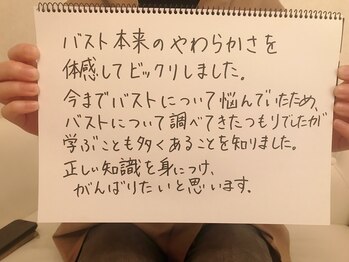 バスト本来のやわらかさを
体感してビックリしました。
今までバストについて悩んでいたため、
バストについて調べてきたつもりでしたが
学ぶことも多くあることを知りました。
正しい知識を身につけ、
がんばりたいと思います。